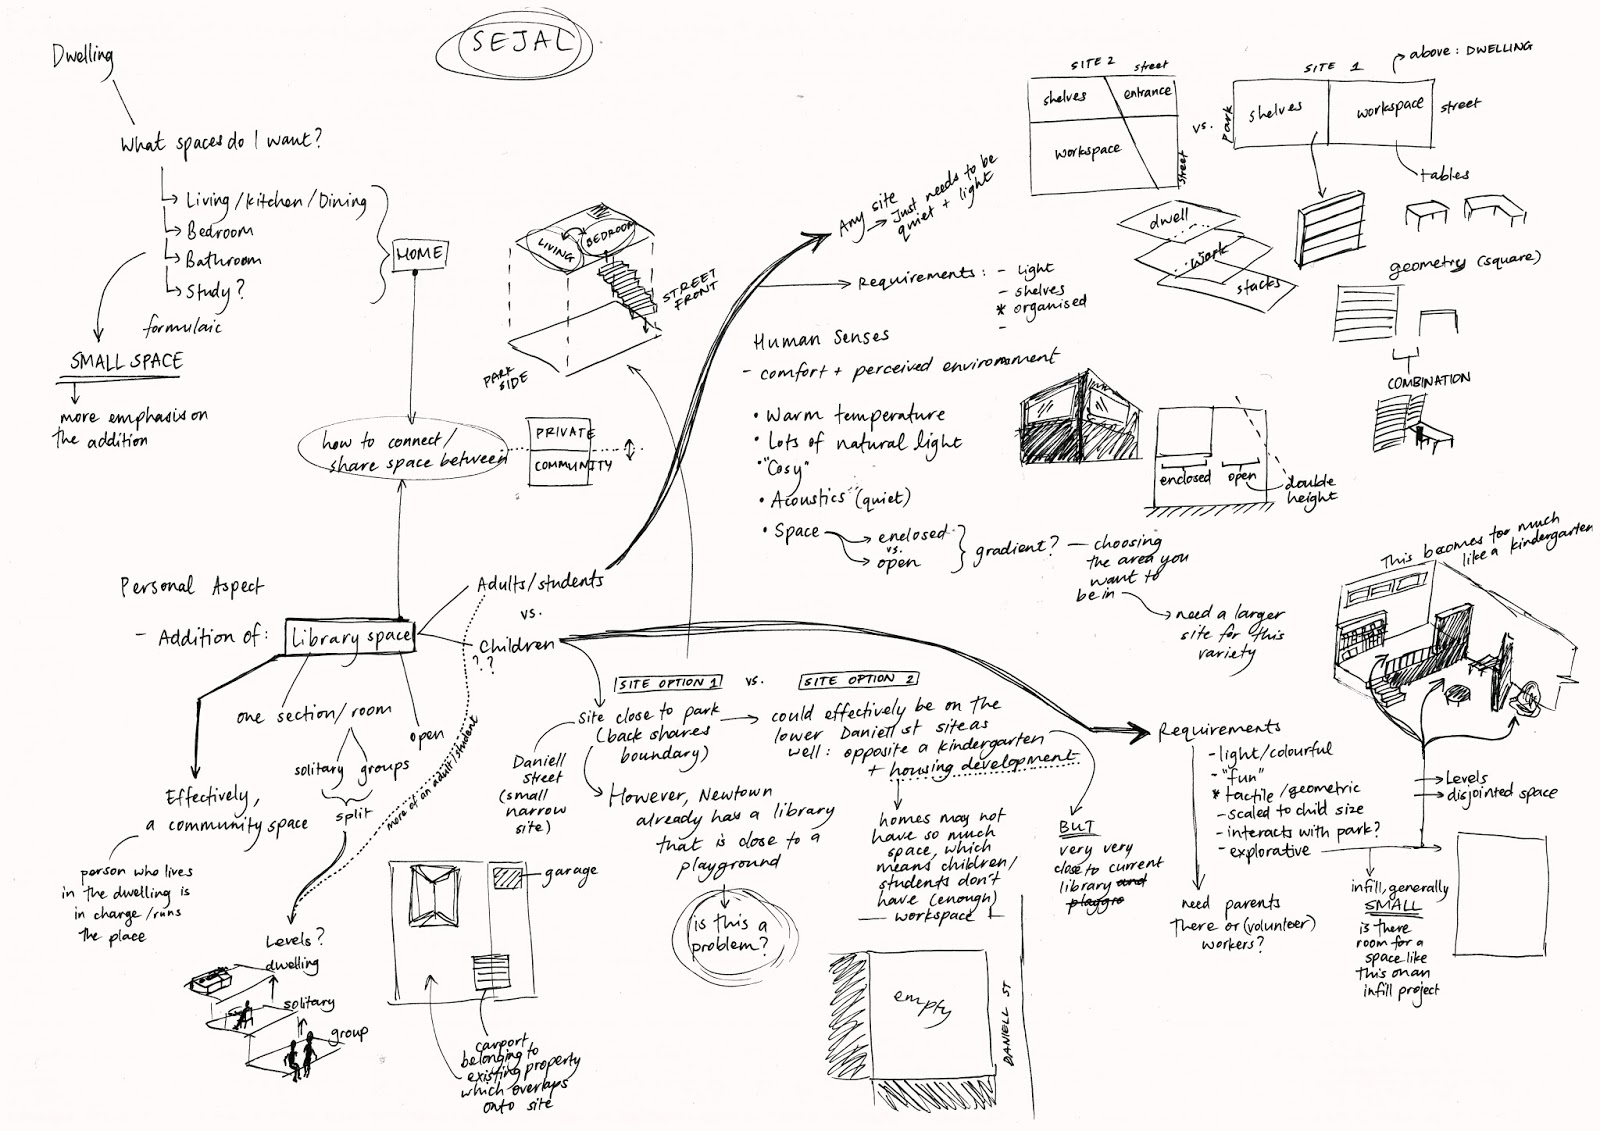 SEJAL
Dwelling
What spaces do I want?
Living/kitchen/Dining
Bedroom
Bathroom
Study?
formulaic
HOME
SMALL SPACE
more emphasis on
the addition
how to connect/
share space between
PRIVATE
COMMUNITY
LIVING
BEDROOM
STREET
FRONT
PARK
SIDE
Personal Aspect
- Addition of:
Library space
Adults/students
vs.
Children
??
one section/room
open
solitary groups
split
more of an adult/student
Effectively,
a community space
person who lives
in the dwelling is
in charge/runs
the place
Levels?
dwelling
solitary
group
garage
carport
belonging to
existing property
which overlaps
onto site
SITE OPTION 1
vs.
SITE OPTION 2
site close to park
(back shares
boundary)
Daniell
street
(small
narrow
site)
However, Newtown
already has a library
that is close to a
playground
is this a
problem?
could effectively be on the
lower Daniell st site as
well: opposite a kindergarten
+ housing development
homes may not
have so much
space, which
means children/
students don't
have (enough)
workspace
BUT
very very
close to current
library and
playgro
empty
DANIELL ST
Any site
Just needs to be
quiet + light
Requirements:
- light
- shelves
* organised
-
Human Senses
- comfort + perceived environment
• Warm temperature
• Lots of natural light
• "Cosy"
• Acoustics (quiet)
• Space
enclosed
vs.
open
gradient?
choosing
the area you
want to
be in
need a larger
site for this
variety
enclosed
open
double
height
SITE 2
street
shelves
entrance
workspace
street
vs.
SITE 1
above: DWELLING
park
shelves
workspace
street
tables
dwell
work
stacks
geometry (square)
COMBINATION
This becomes too much
like a kindergarten
Requirements
- light/colourful
- "fun"
* tactile/geometric
- scaled to child size
- interacts with park?
- explorative
Levels
disjointed space
need parents
there or (volunteer)
workers?
infill, generally
SMALL
is there
room for a
space like
this on an
infill project